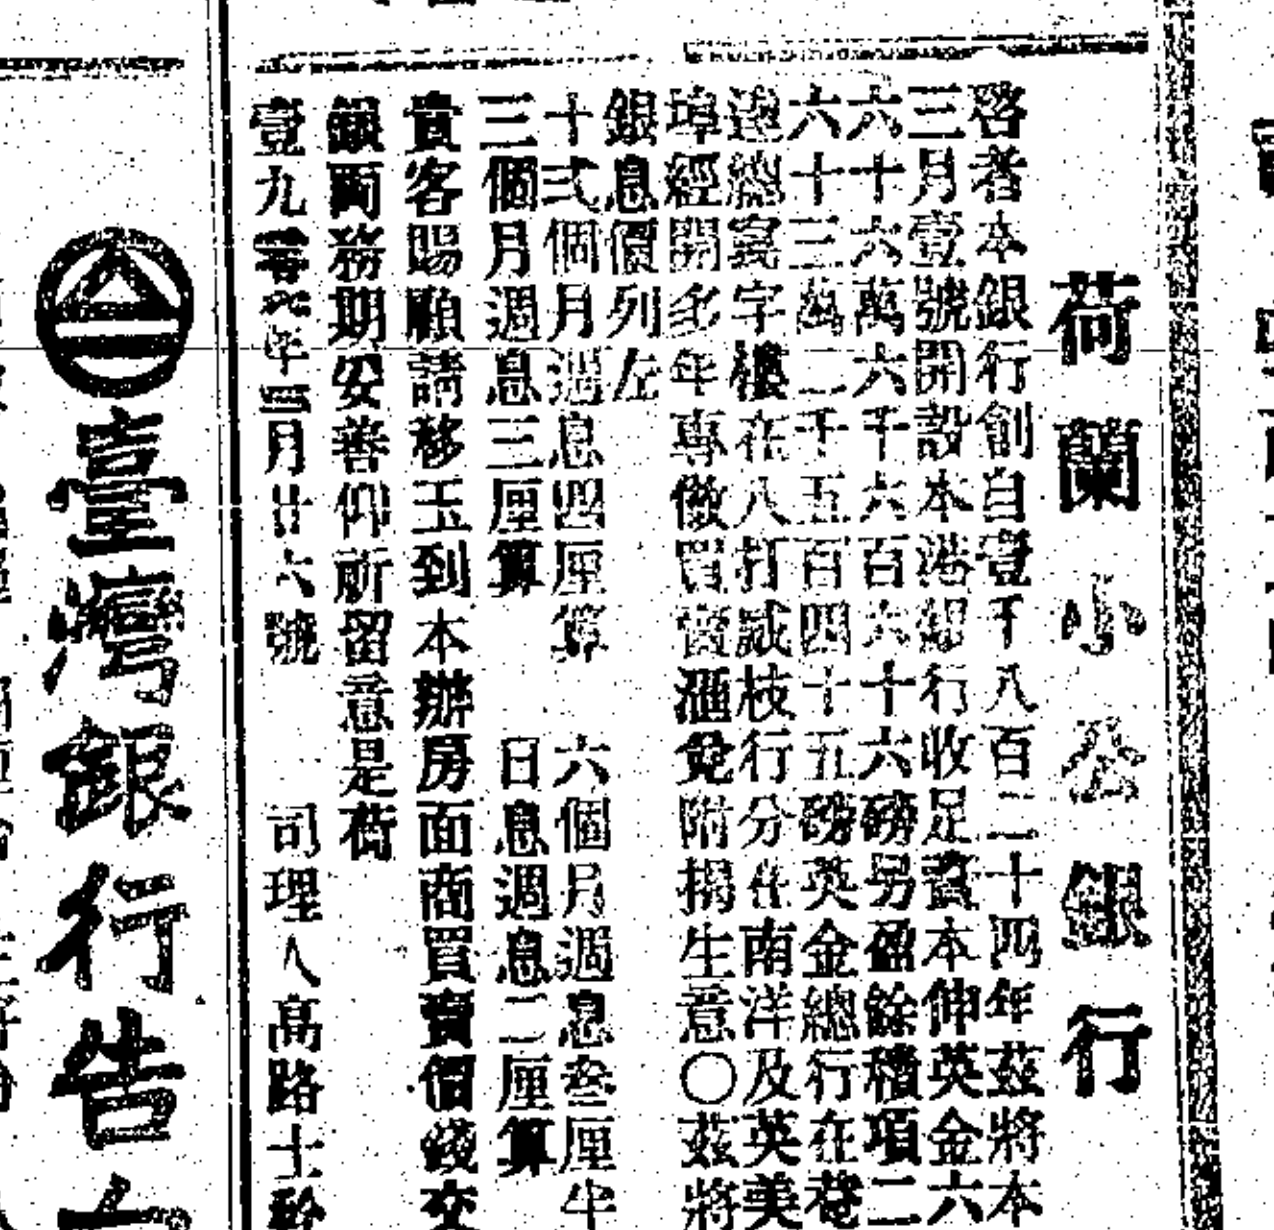 荷蘭小公銀行
啓者本銀行創自壹千八百二十四年茲將本
三月壹號開設本港銀行收足資本伸英金六
六十六萬六千六百六十六磅另盈餘積項二
六十三萬二千五百四十五磅英金總行在菴
達總寫字樓在八打威枝行分在南洋及英美
埠經開多年專做買賣滙兌附揭生意〇茲將
銀息價列左
十弍個月週息四厘算 六個月週息叁厘半
三個月週息三厘算 日息週息二厘算
貴客賜顧請移玉到本辦房面商買賣價錢交
銀兩務期妥善仰祈留意是荷
壹九零年三月廿六號 司理人高路士
臺灣銀行告